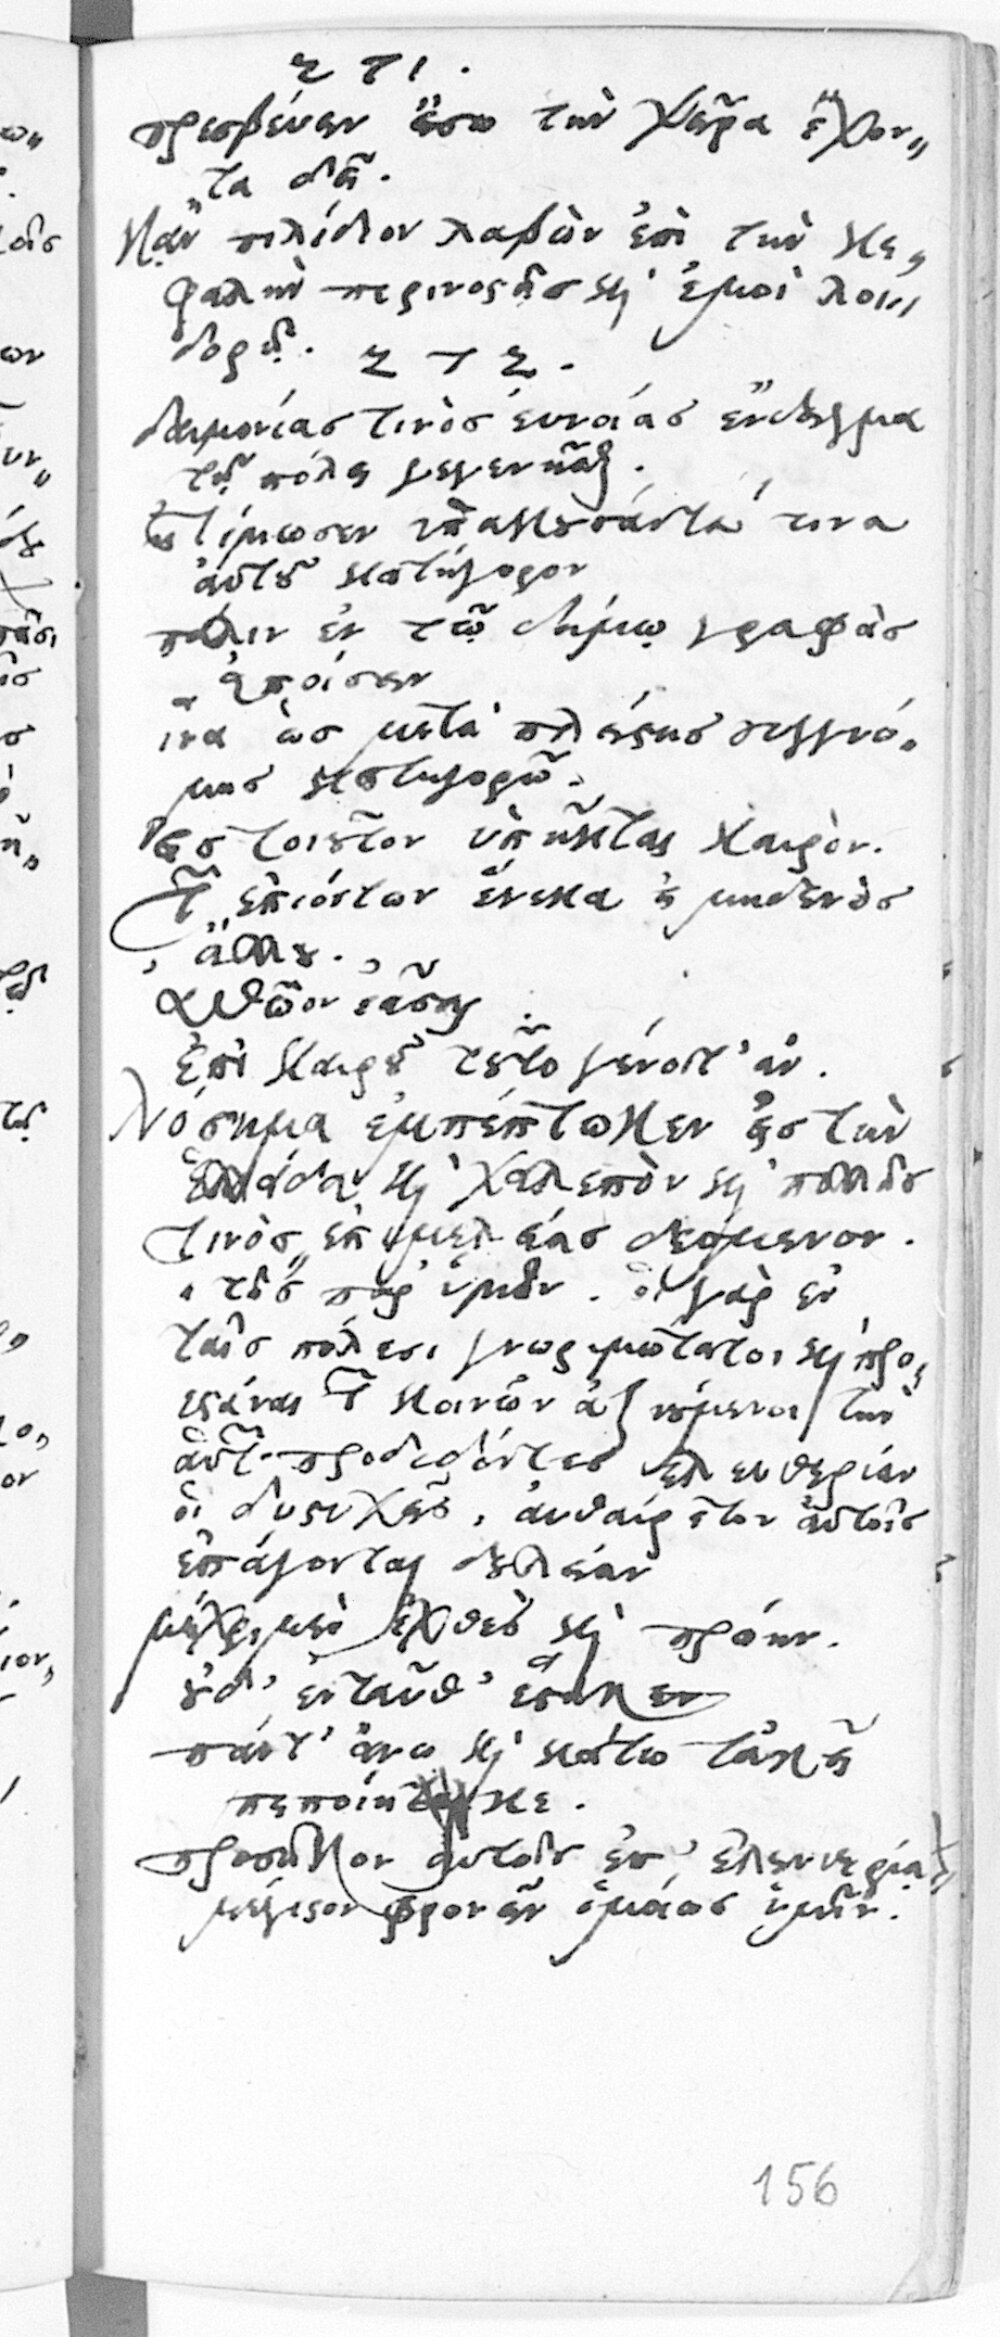 Σ Τ Ι .
πρεσβεύειν εἴσω τὴν χεῖρα ἔχον„
τα δεῖ.
κἂν πιλίδιον λαβὼν ἐπὶ τὴν κε„
φαλὴν περινοστῇς καὶ ἐμοὶ λοι„
δορῇ. Σ Τ Σ .
δαιμονίας τινὸς εὐνοίας ἔνδειγμα
τῇ πόλει γεγενῆσθαι.
ἠτίμωσεν ὑπακούσαντά τινα
αὐτοῦ κατήγορον
πάλιν ἐν τῷ δήμῳ γραφὰς
ἀποίσειν
ἵνα ὡς μετὰ πλείστης συγγνώ„
μης κατηγορῶ.
εἰς τοιοῦτον ὑπῆκται καιρόν.
τῶν ἐπιόντων ἕνεκα καὶ μηδενὸς
ἄλλου.
ἀθῶον ἐᾶσαι
ἐπὶ καιροῦ τοῦτο γένοιτ' ἄν.
Νόσημα ἐμπέπτωκεν εἰς τὴν
Ἑλλάδα καὶ χαλεπὸν καὶ πολλῆς
τινὸς ἐπιμελείας δεόμενον.
τῆς παρ' ὑμῶν. οἱ γὰρ ἐν
ταῖς πόλεσι γνωριμώτατοι καὶ προ„
εστάναι τῶν κοινῶν ἀξιούμενοι τὴν
αὑτῶν προδιδόντες ἐλευθερίαν
οἱ δυστυχεῖς, αὐθαίρετον αὑτοῖς
ἐπάγονται δουλείαν
μέχρι μὲν ἐχθὲς καὶ πρώην.
οὐδ' ἐνταῦθ' ἕστηκεν
πάντ' ἄνω καὶ κάτω τἀκεῖ
πεποίηκε.
προσῆκον αὐτοῖς ἐπ' ἐλευθερίᾳ
μέγιστον φρονεῖν ὁμοίως ὑμῖν.
156